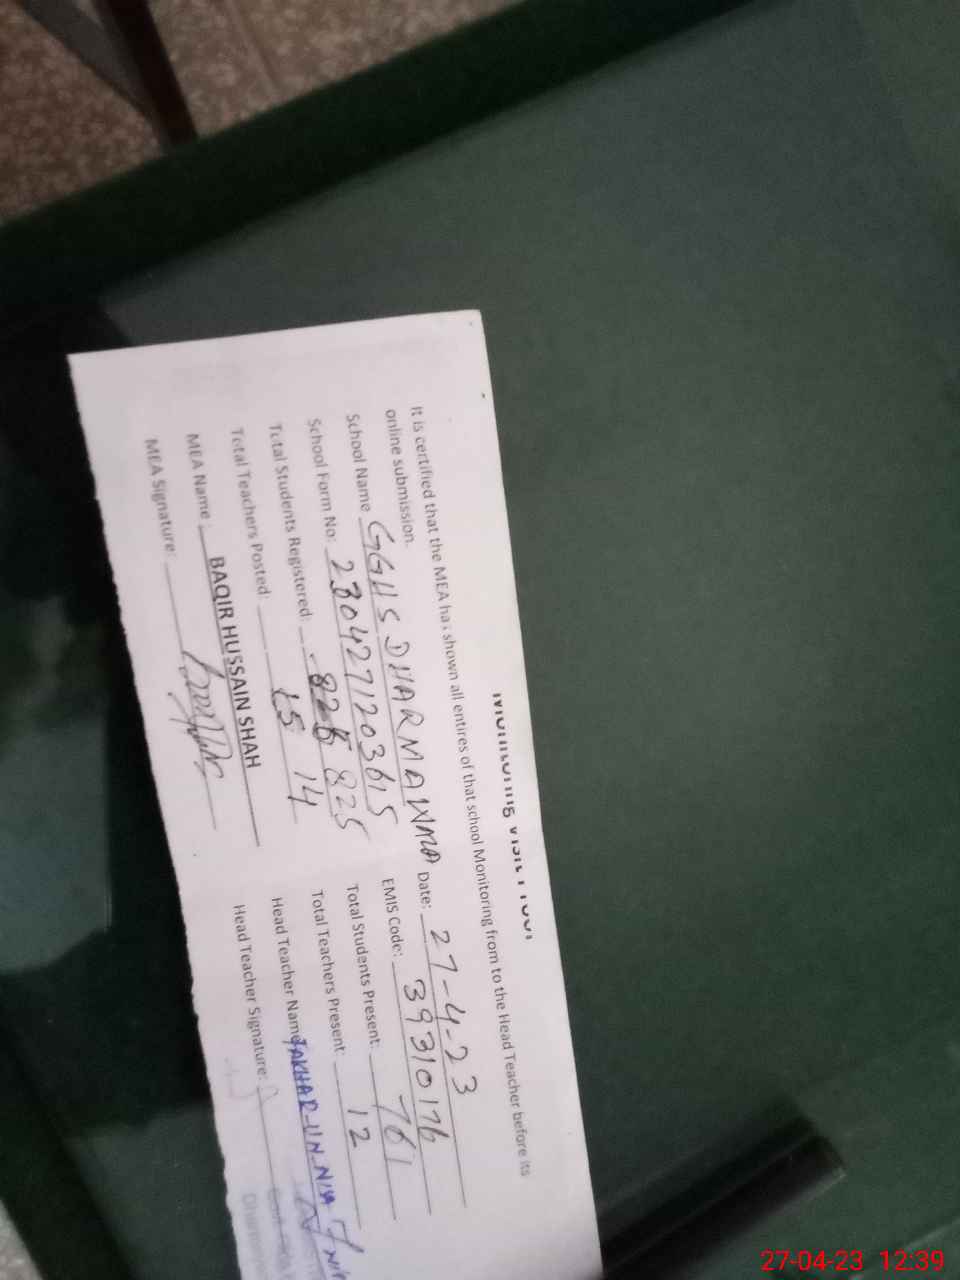 Monitoring Visit Proof
It is certified that the MEA has shown all entires of that school Monitoring from to the Head Teacher before its
online submission.
School Name GGHS DHARMAWALA Date: 27-4-23
School Form No: 2304271203615 EMIS Code: 39310176
Total Students Registered: 825 Total Students Present: 761
Total Teachers Posted: 15 14 Total Teachers Present 12
MEA Name : BAQIR HUSSAIN SHAH Head Teacher Name
MEA Signature: Head Teacher Signature:
27-04-23 12:39